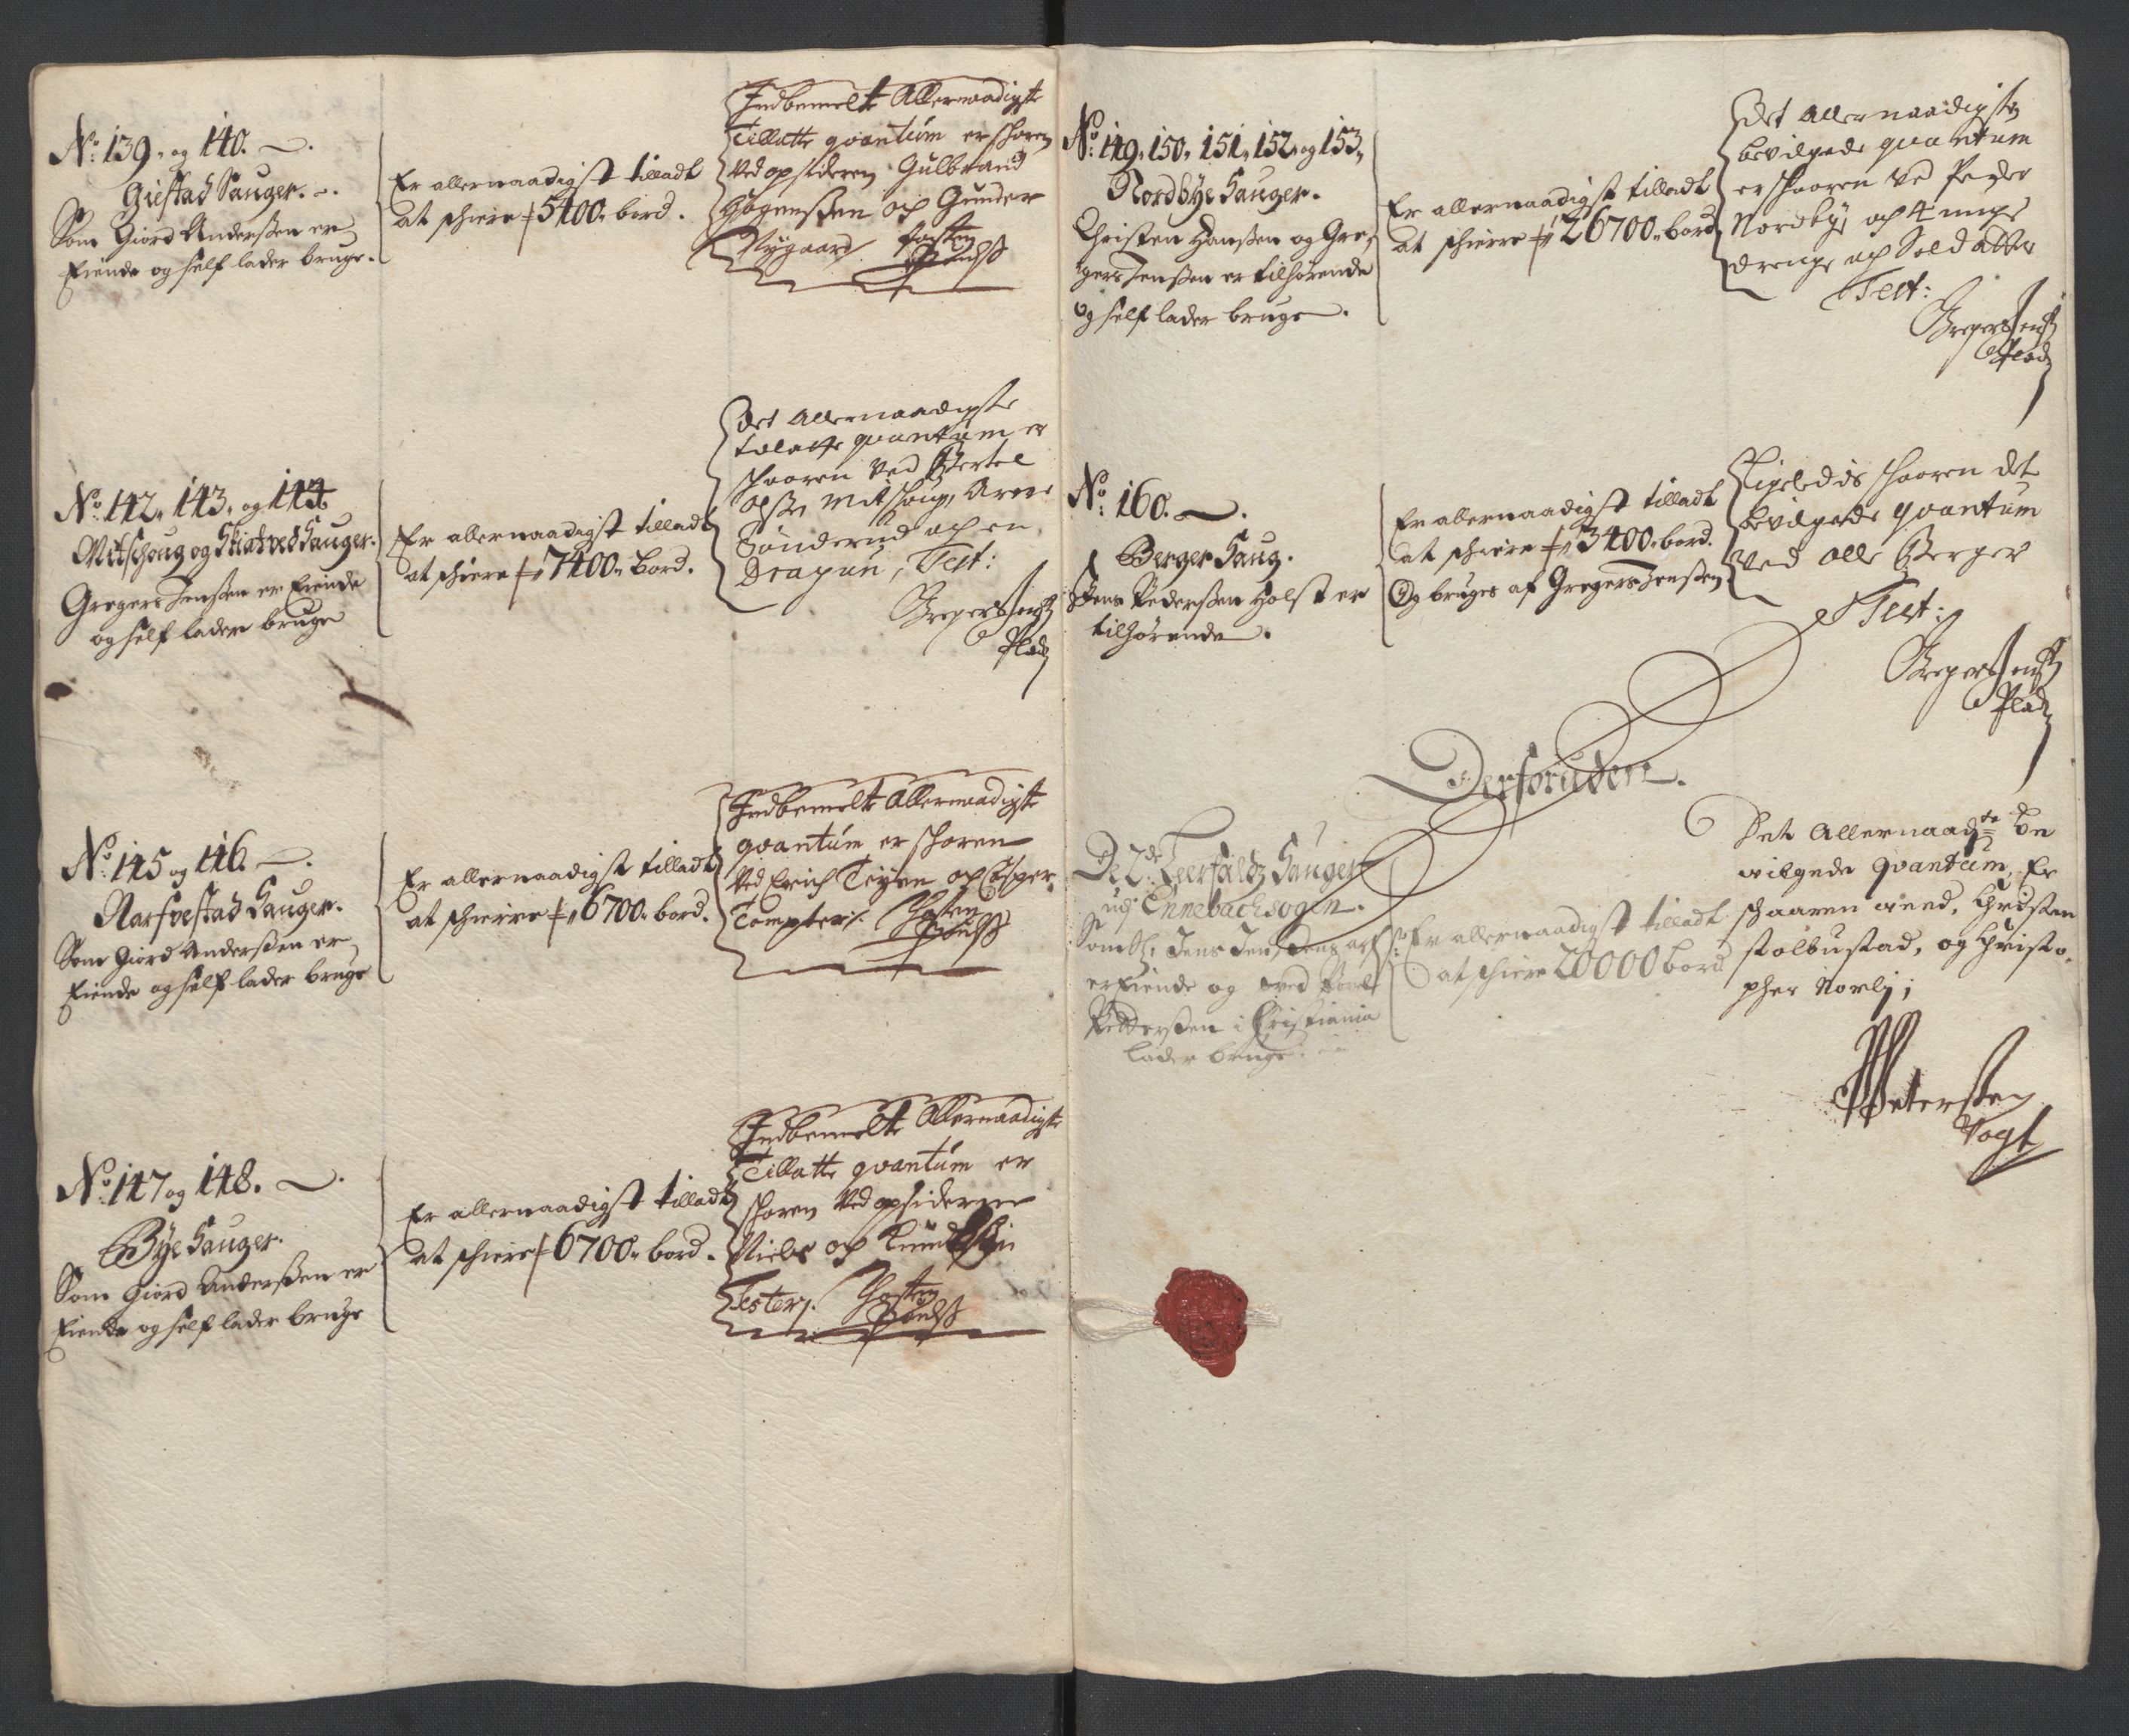 No: 139. og 140.
Giestad Sauger.
Som Giord Anderssen er
Eiende og self lader bruge.
Er allernaadigst tilladt
at schiere # 5400. bord.
Indbemelte Allernaadigste
Tillatte qvantum er schoren
Ved opsideren Gulbrand
Gagenssen och Gunder
Nygaard.
No: 142. 143. og 144
Mitschoug og Skiatved Sauger.
Gregers Jenssen er Eiende
og self lader bruge
Er allernaadigst tilladt
at schiere # 7400. bord.
Det Allernaadigste
tilatte quantum er
schaaren ved Bertel
Mitschoug, Arne
Sønderud och en
Dragun, Test:
Gregers Jenss
Plad
No: 145 og 146.
Narfvestad Sauger.
Som Giord Anderssen er
Eiende og self lader bruge
Er allernaadigst tilladt
at schiere # 6700. bord.
Indbemelte Allernaadigste
qvantum er schoren
Ved Erich Teyen och Casper
Tompter.
No: 147 og 148.
Bye Sauger.
Som Giord Anderssen er
Eiende og self lader bruge
Er allernaadigst tilladt
at schiere # 6700. bord.
Indbemelte Allernaadigste
Tillatte qvantum er
schoren Ved opsiderene
Niels och Knud
Tester.
No: 149. 150. 151. 152. og 153.
Nordbye Sauger.
Christen Hanssen og Gre-
gers Jenssen er tilhørende
og self lader bruge.
Er allernaadigst tilladt
at schiere # 26700. bord
Det Allernaadigste
bevilgede quantum
er schaaren ved Peder
Nordbye och 4 unge
drenge och Soldatter
Test:
Gregers Jenss
Plad
No: 160.
Berger Saug.
Jens Pederssen Holst er
tilhørende.
Er allernaadigst tilladt
at schiere # 3400. bord.
Og bruges af Gregers Jenssen
Ligeledis schaaren det
bevilgede qvantum
ved Olle Berger
Test:
Gregers Jenss
Plad
Derforuden.
De 2de Sauger
udj Ennebachsogen.
Som
er Eiende og ved Povel
Pederssen i Christiania
lader bruge.
Er allernaadigst tilladt
at schiere 20000 bord
Det Allernaadste be
wilgede qvantum, Er
schaaren weed, Christen
stolbustad, og Christo-
pher Norbj;
Peterssen
Vogt